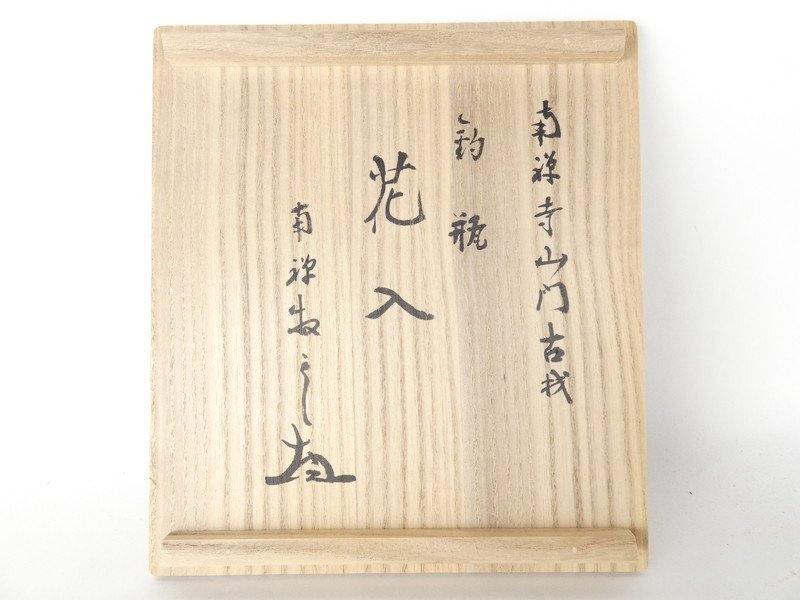 南禅寺山門古材
釣瓶
花入
南禅牧之